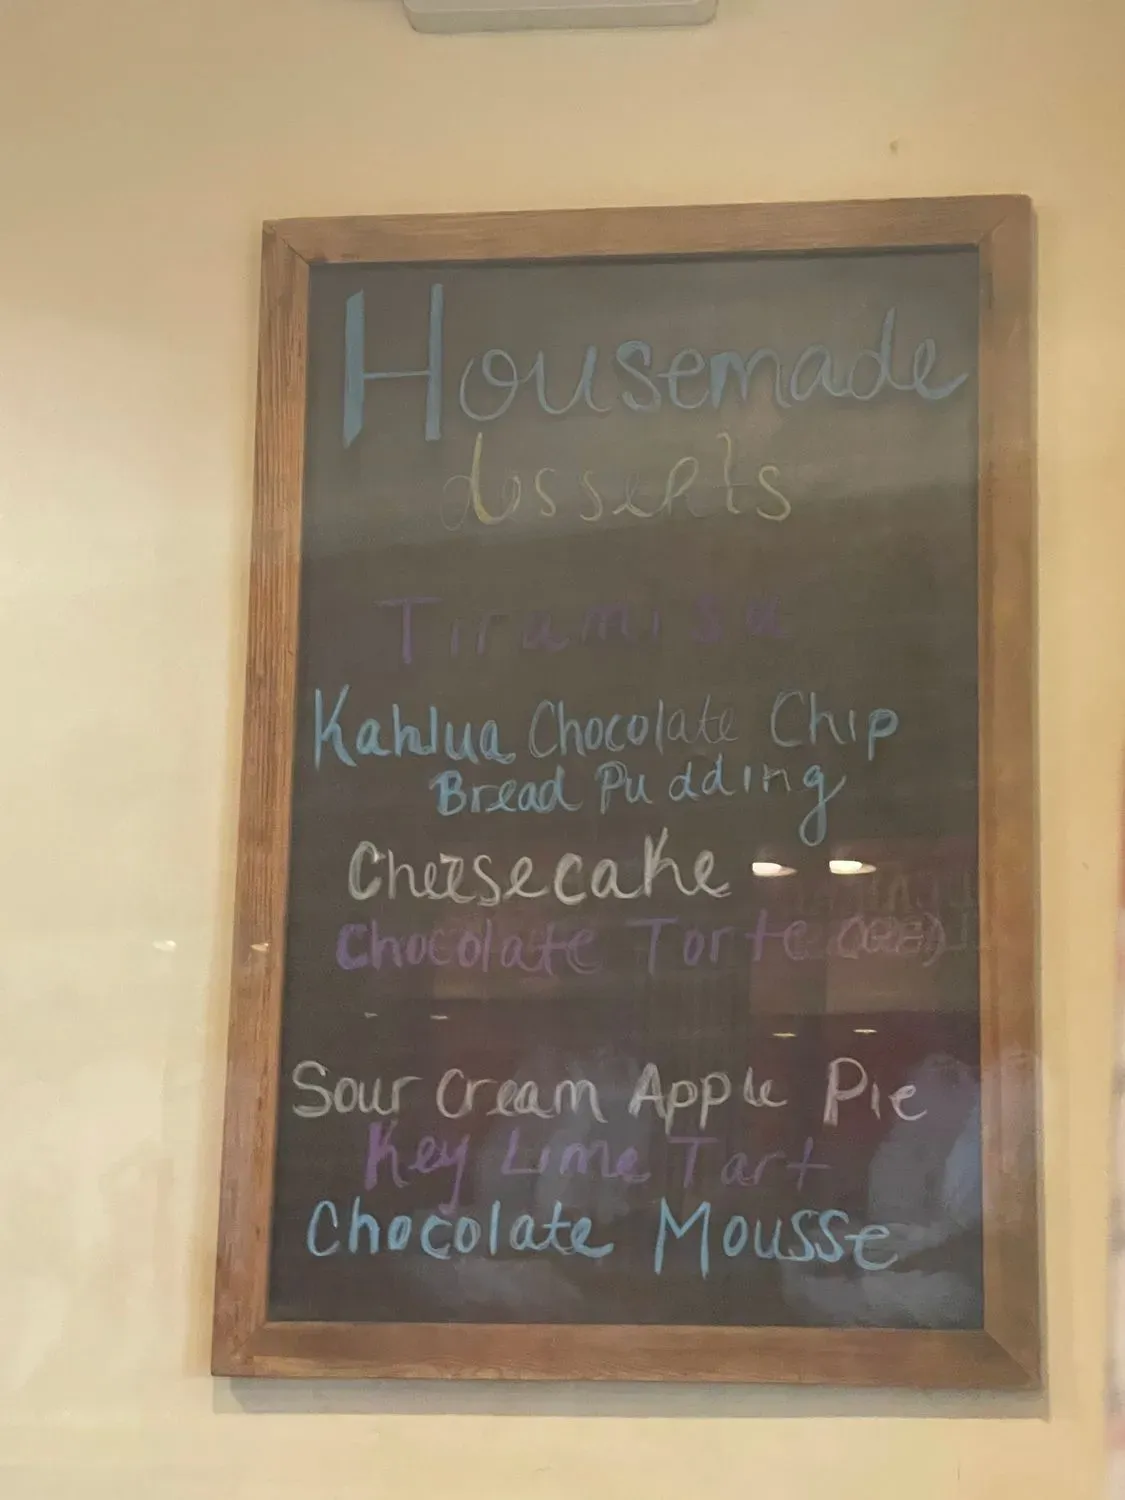 Housemade
desserts
Tiramisu
Kahlua Chocolate Chip
Bread Pudding
Cheesecake
Chocolate Torte
Sour Cream Apple Pie
Key Lime Tart
Chocolate Mousse